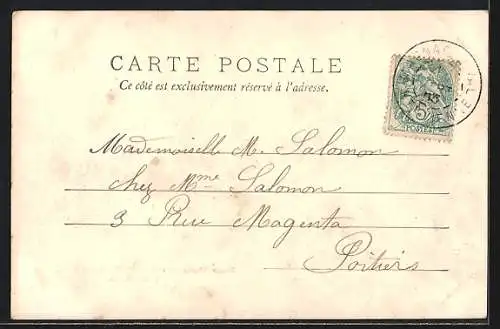 CARTE POSTALE
Ce côté est exclusivement réservé à l'adresse.
Mademoiselle M. Salomon
chez Mme Salomon
3 Rue Magenta
Poitiers
5
POSTES